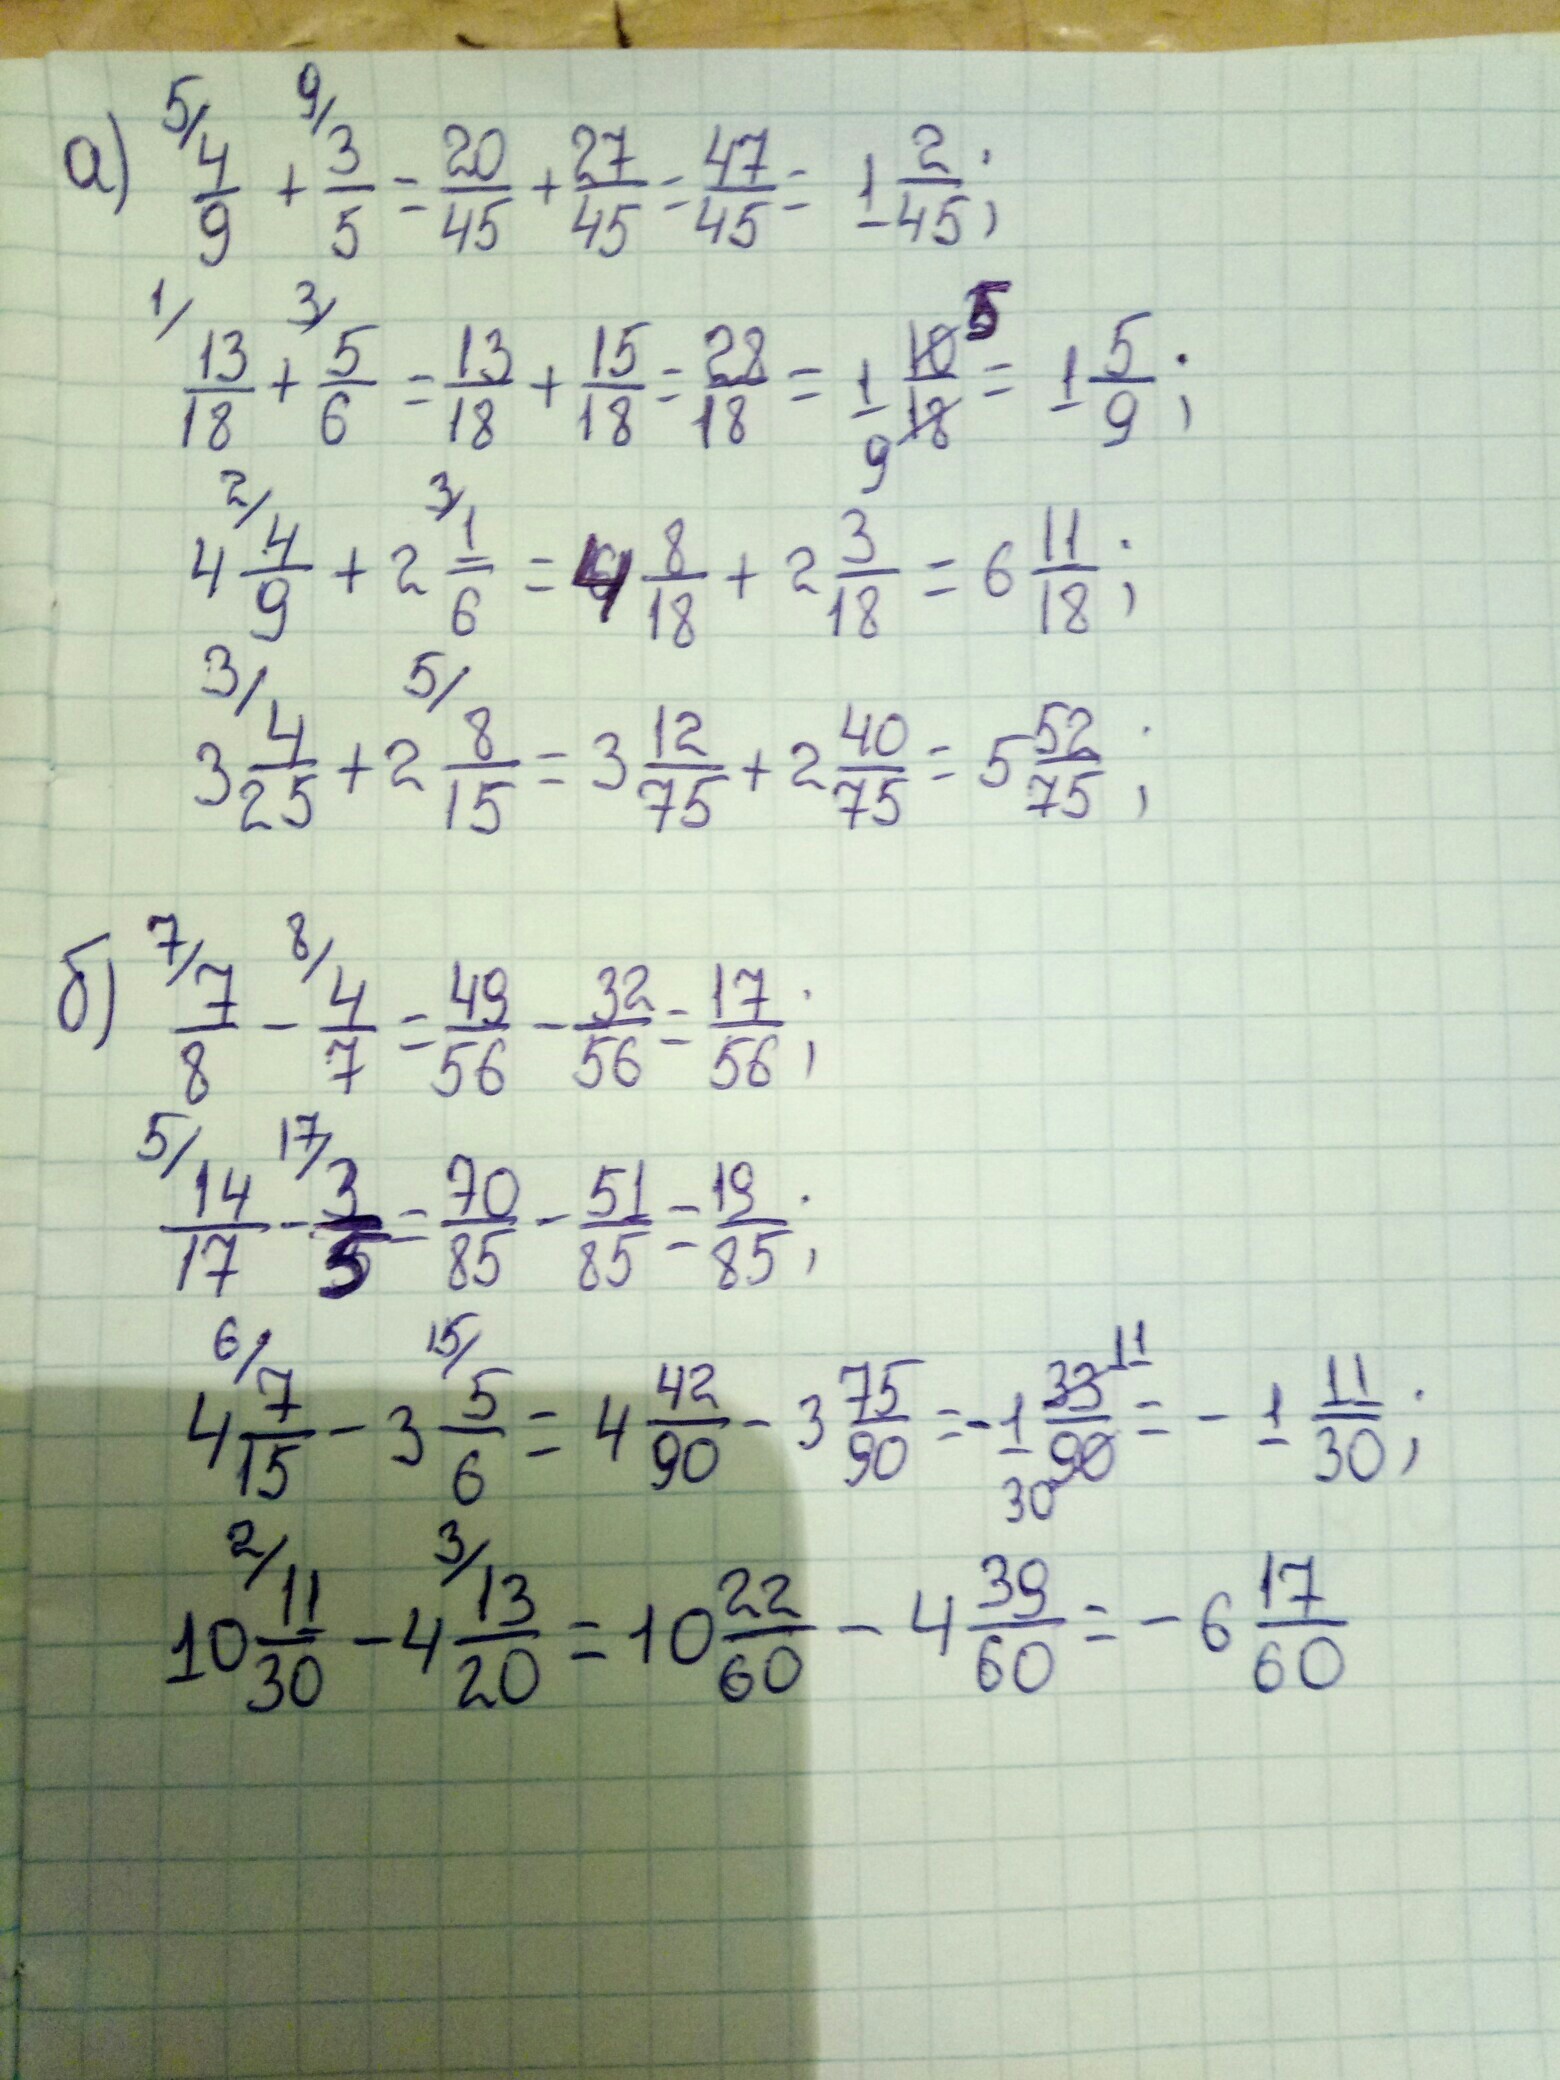 а) 5/ 4/9 + 9/ 3/5 = 20/45 + 27/45 = 47/45 = 1 2/45;
1/ 13/18 + 3/ 5/6 = 13/18 + 15/18 = 28/18 = 1 10/18 5 9 = 1 5/9;
4 2/ 4/9 + 2 3/ 1/6 = 4 8/18 + 2 3/18 = 6 11/18;
3 3/ 4/25 + 2 5/ 8/15 = 3 12/75 + 2 40/75 = 5 52/75;
б) 7/ 7/8 - 8/ 4/7 = 49/56 - 32/56 = 17/56;
5/ 14/17 - 17/ 3/5 = 70/85 - 51/85 = 19/85;
4 6/ 7/15 - 3 15/ 5/6 = 4 42/90 - 3 75/90 = -1 33/90 11 30 = -1 11/30;
10 2/ 11/30 - 4 3/ 13/20 = 10 22/60 - 4 39/60 = -6 17/60